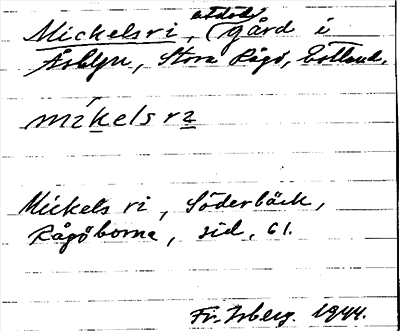 Mickelsri, (utdöd) gård i
Åsbyn, Stora Rågö, Estland.
míkelsri
Mickels ri, Söderbäck,
Rågöborna, sid. 61.
Fr. Isberg. 1944.